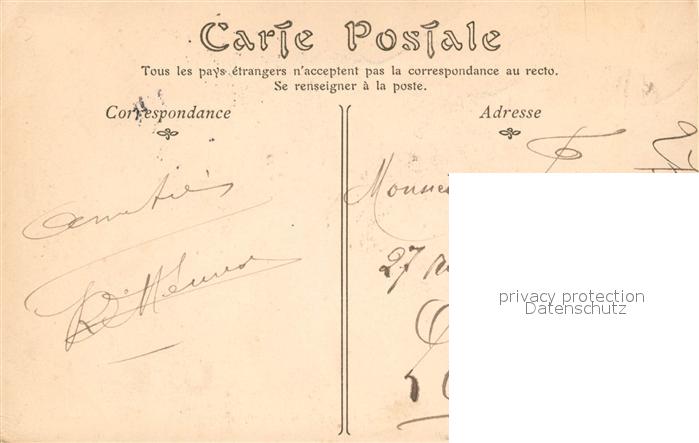 Carte Postale
Tous les pays étrangers n'acceptent pas la correspondance au recto.
Se renseigner à la poste.
Correspondance
Adresse
Amitiés
27
privacy protection
Datenschutz